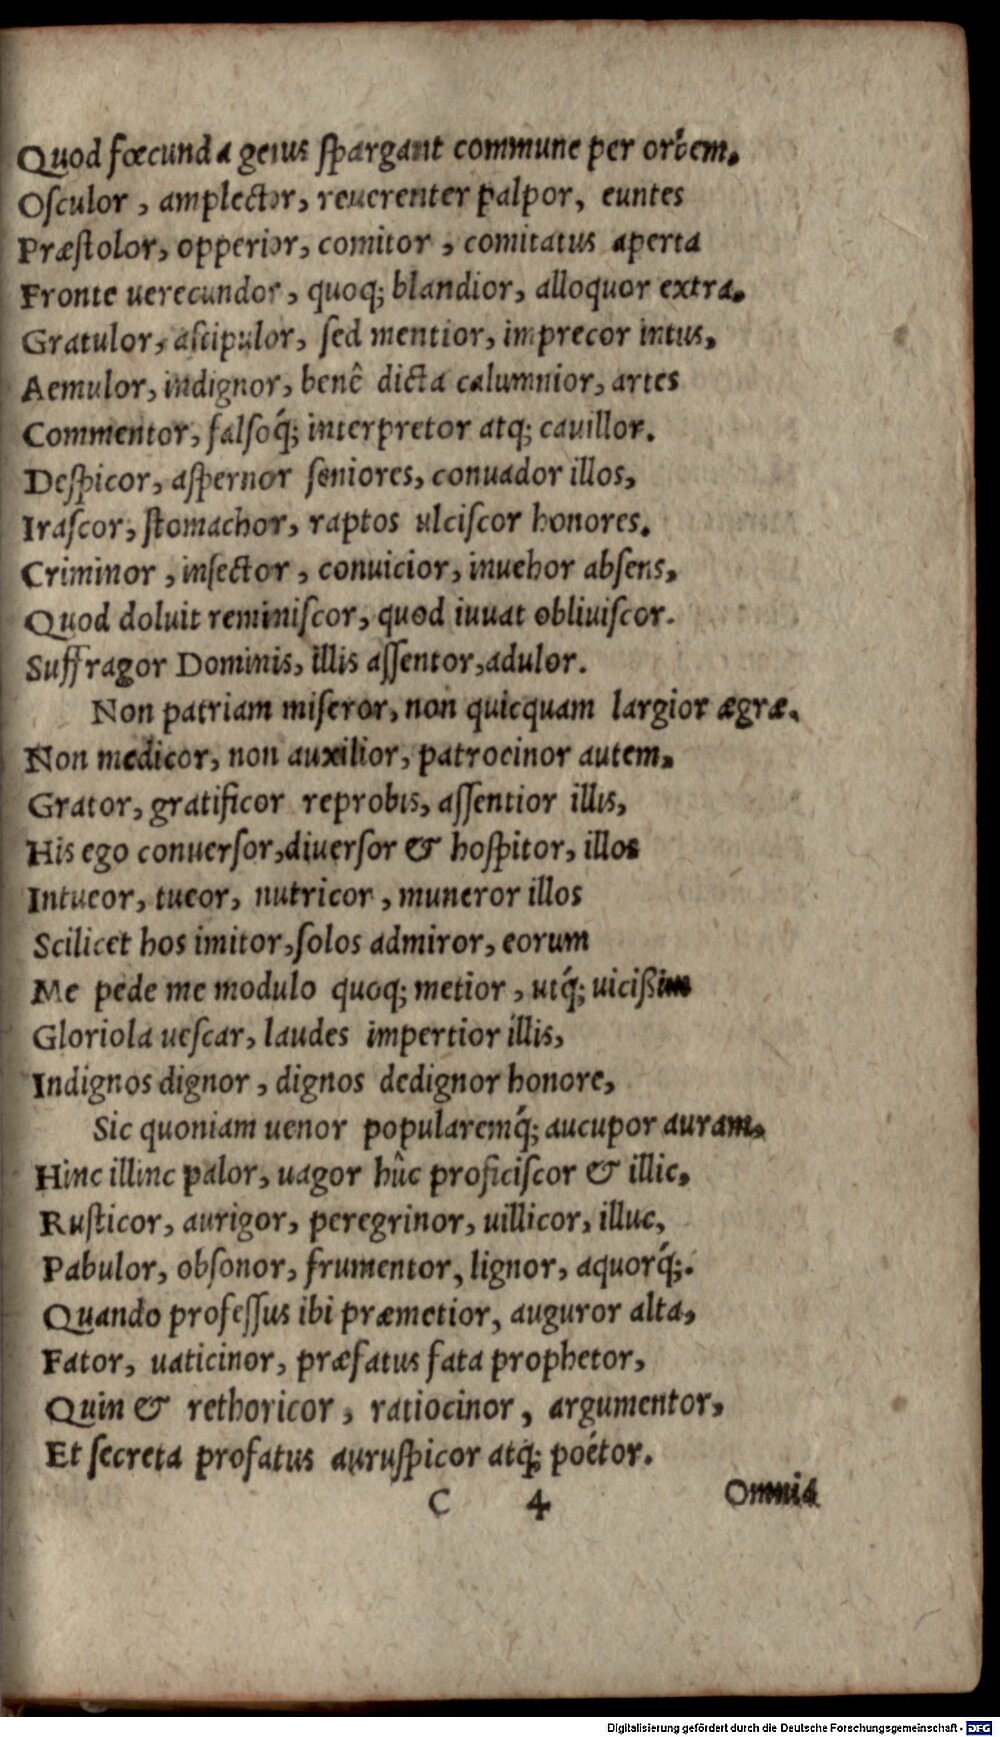 Quod fœcunda genus spargant commune per orbem.
Osculor, amplector, reuerenter palpor, euntes
Præstolor, opperior, comitor, comitatus aperta
Fronte uerecundor, quoq; blandior, alloquor extra.
Gratulor, ascipulor, sed mentior, imprecor intus,
Aemulor, indignor, benê dicta calumnior, artes
Commentor, falsoq́; interpretor atq; cauillor.
Despicor, aspernor seniores, conuador illos,
Irascor, stomachor, raptos ulciscor honores.
Criminor, insector, conuicior, inuehor absens,
Quod doluit reminiscor, quod iuuat obliuiscor.
Suffragor Dominis, illis assentor, adulor.
Non patriam miseror, non quicquam largior ægræ.
Non medicor, non auxilior, patrocinor autem.
Grator, gratificor reprobis, assentior illis,
His ego conuersor, diuersor & hospitor, illos
Intueor, tueor, nutricor, muneror illos
Scilicet hos imitor, solos admiror, eorum
Me pede me modulo quoq; metior, utq́; uicißim
Gloriola uescar, laudes impertior illis,
Indignos dignor, dignos dedignor honore,
Sic quoniam uenor popularemq́; aucupor auram.
Hinc illinc palor, uagor hûc proficiscor & illic.
Rusticor, aurigor, peregrinor, uillicor, illuc,
Pabulor, obsonor, frumentor, lignor, aquorq́;.
Quando professus ibi præmetior, auguror alta,
Fator, uaticinor, præfatus fata prophetor,
Quin & rethoricor, ratiocinor, argumentor,
Et secreta profatus auruspicor atq; poétor.
C 4 Omnia
Digitalisierung gefördert durch die Deutsche Forschungsgemeinschaft - DFG